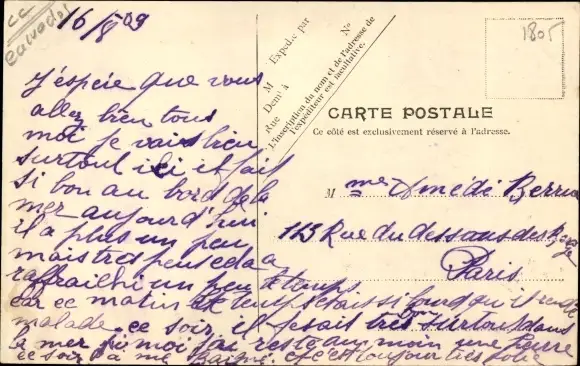 cc
Calvados
16/8 09
J'espère que vous
allez bien tous
moi je vais bien
surtout ici il fait
si bon au bord de la
mer aujourd'hui
il a plus un peu
mais tres peu cela a
raffraichi un peu le temps
car ce matin le temps etais si lourd qu'il rend
malade ce soir il fesait très bon surtout dans
la mer moi j'ai reste au moin une heure
ce soir a me baigné c'est toujour très jolie
M Expédié par
Demt à
Rue
No
L'inscription du nom et de l'adresse de
l'expéditeur est facultative.
1805
CARTE POSTALE
Ce côté est exclusivement réservé à l'adresse.
M me Amédé Berrie
113 Rue du dessous des Berge
Paris